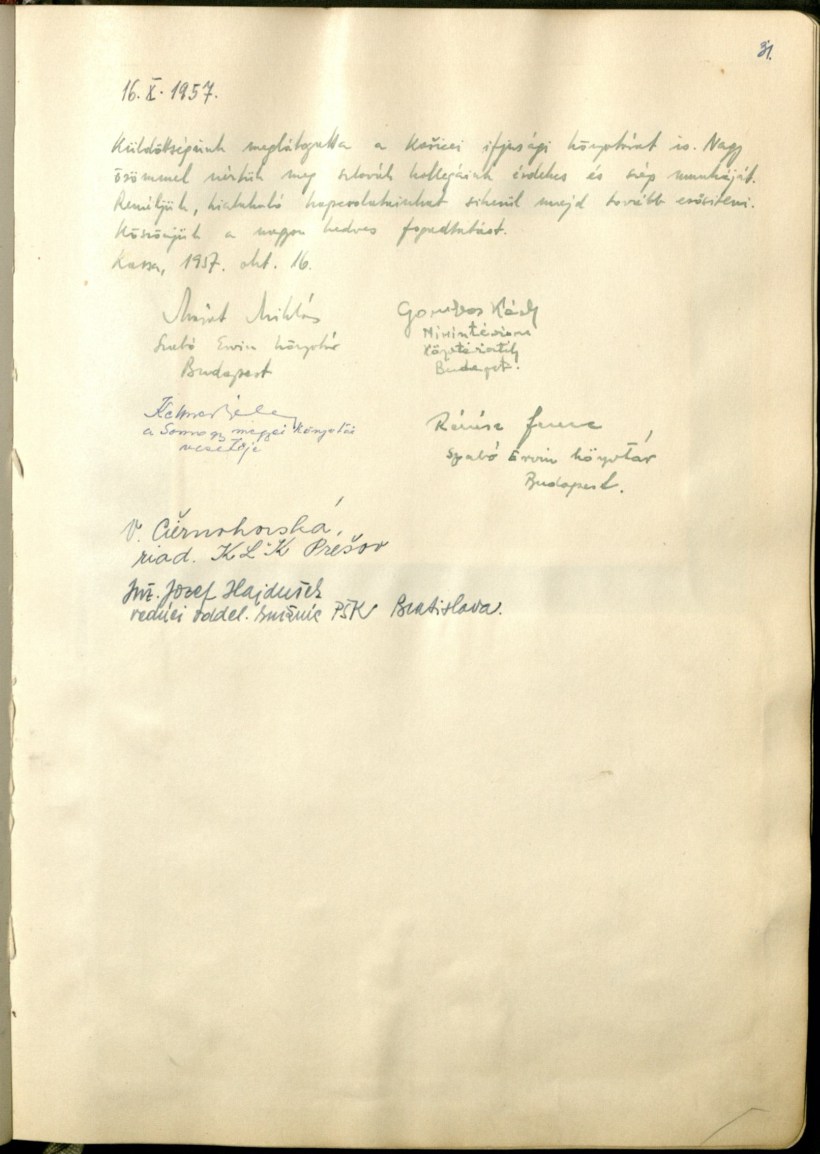 31.
16. X. 1957.
Küldöttségünk meglátogatta a Košicei ifjusági könyvtárat is. Nagy
örömmel néztük meg szlovák kollegáink érdekes és szép munkáját.
Reméljük, kialakuló kapcsolatainkat sikerül majd tovább erősiteni.
Köszönjük a nagyon kedves fogadtatást.
Kassa, 1957. okt. 16.
Miklós
Szabó Ervin könyvtár
Budapest
Gombos
Minisztérium
Budapest.
Kellner Béla
a Somogy megyei Könyvtár
vezetője
Ferenc
Szabó Ervin könyvtár
Budapest.
V. Čiernohorská,
riad. KĽK Prešov
Inž. Jozef Hajdušek
vedúci oddel. knižníc PŠK Bratislava.